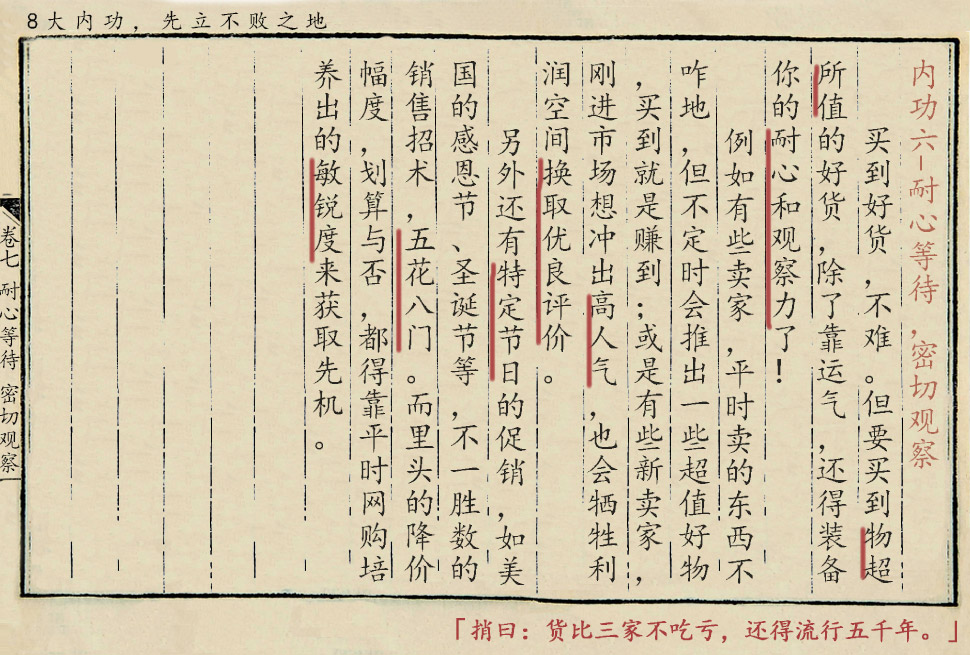 8大内功，先立不败之地
内功六—耐心等待，密切观察
买到好货，不难。但要买到物超
所值的好货，除了靠运气，还得装备
你的耐心和观察力了！
例如有些卖家，平时卖的东西不
咋地，但不定时会推出一些超值好物
，买到就是赚到；或是有些新卖家，
刚进市场想冲出高人气，也会牺牲利
润空间换取优良评价。
另外还有特定节日的促销，如美
国的感恩节、圣诞节等，不一胜数的
销售招术，五花八门。而里头的降价
幅度，划算与否，都得靠平时网购培
养出的敏锐度来获取先机。
卷七 耐心等待 密切观察
「捎曰：货比三家不吃亏，还得流行五千年。」